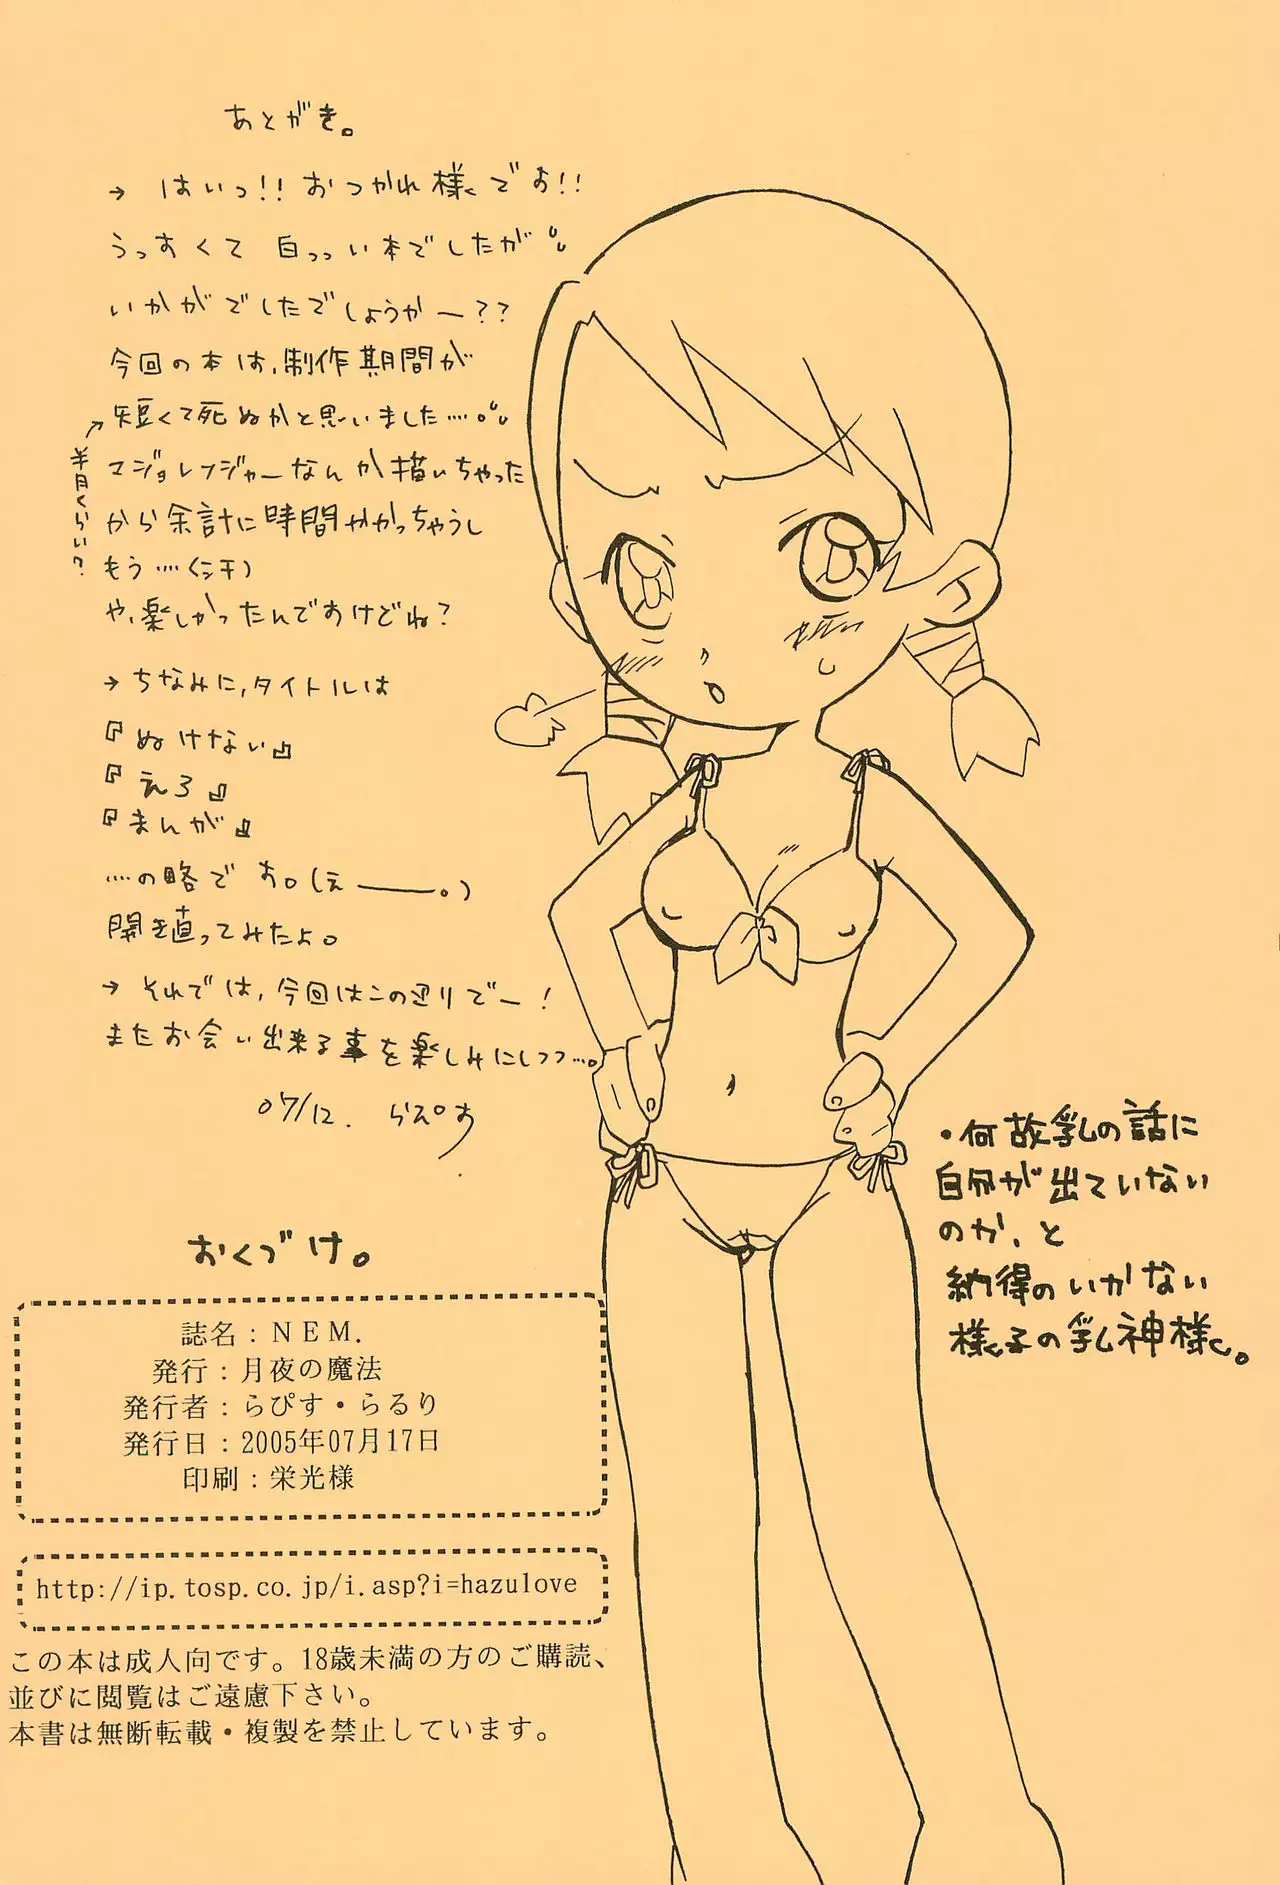 あとがき。
→ はいっ!! おつかれ様です!!
うっすくて 白っっい本でしたが
いかがでしたでしょうかー??
今回の本は、制作期間が
短くて死ぬかと思いました……。
半月くらい?
マジョレンジャーなんか描いちゃった
から余計に時間かかっちゃうし
もう……(汗)
や、楽しかったんですけどね?
→ ちなみに、タイトルは
『ぬけない』
『えろ』
『まんが』
……の略です。(えー。)
開き直ってみたよ。
→ それでは、今回はこの辺りでー!
またお会い出来る事を楽しみにしつつ…。
07/12. らぴす
・何故乳の話に
自分が出ていない
のか、と
納得のいかない
様子の乳神様。
おくづけ。
誌名：NEM.
発行：月夜の魔法
発行者：らぴす・らるり
発行日：2005年07月17日
印刷：栄光様
http://ip.tosp.co.jp/i.asp?i=hazulove
この本は成人向です。18歳未満の方のご購読、
並びに閲覧はご遠慮下さい。
本書は無断転載・複製を禁止しています。